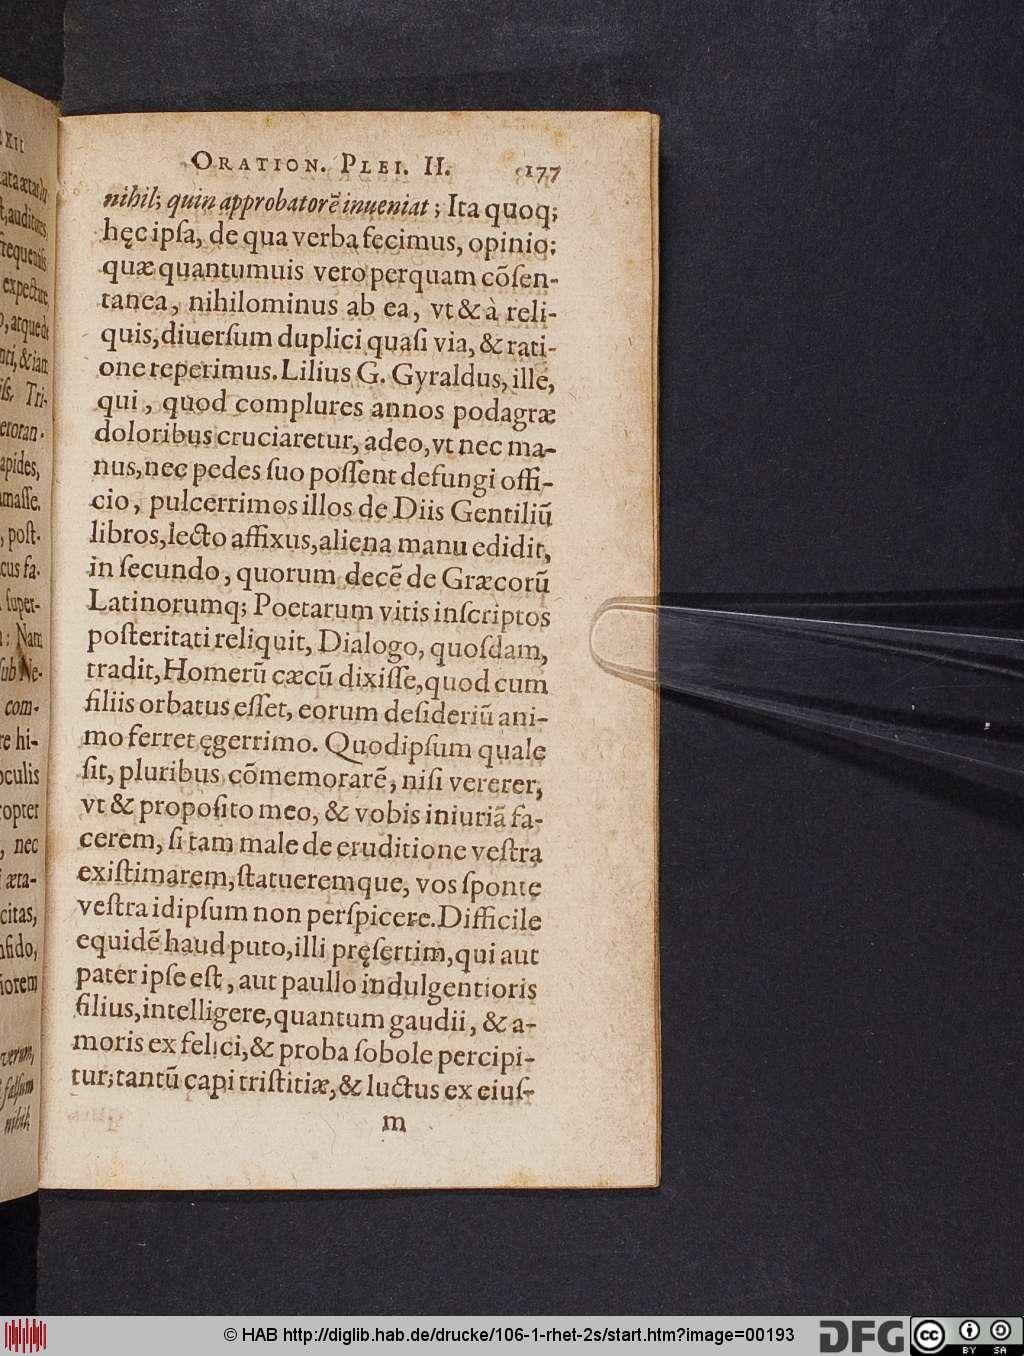 ORATION. PLEI. II. 177
nihil; quin approbatorē inueniat; Ita quoq;
hęc ipſa, de qua verba fecimus, opinio:
quæ quantumuis vero perquam cõſen-
tanea, nihilominus ab ea, vt & à reli-
quis, diuerſum duplici quaſi via, & rati-
one reperimus. Lilius G. Gyraldus, ille,
qui, quod complures annos podagræ
doloribus cruciaretur, adeo, vt nec ma-
nus, nec pedes ſuo poſſent defungi offi-
cio, pulcerrimos illos de Diis Gentiliū
libros, lecto affixus, aliena manu edidit,
in ſecundo, quorum decē de Græcorū
Latinorumq; Poetarum vitis inſcriptos
poſteritati reliquit, Dialogo, quoſdam,
tradit, Homerū cæcū dixiſſe, quod cum
filiis orbatus eſſet, eorum deſideriū ani-
mo ferret ęgerrimo. Quod ipſum quale
ſit, pluribus cõmemorarē, niſi vererer,
vt & propoſito meo, & vobis iniuriā fa-
cerem, ſi tam male de eruditione veſtra
exiſtimarem, ſtatueremque, vos ſponte
veſtra id ipſum non perſpicere. Difficile
equidē haud puto, illi pręſertim, qui aut
pater ipſe eſt, aut paullo indulgentioris
filius, intelligere, quantum gaudii, & a-
moris ex felici, & proba ſobole percipi-
tur; tantū capi triſtitiæ, & luctus ex eiuſ-
m
XII
ſt, auditores,
frequentiſ
expectare,
o, atque de
nti, & iam
iſſ. Tri-
eroran-
apides,
maſſe.
, poſt-
cus fa-
ſuper-
: Nam
ſub Ne-
com-
re hi-
oculis
ropter
, nec
æta-
citas,
nfido,
iorem
verum,
falſum
nihil;
© HAB http://diglib.hab.de/drucke/106-1-rhet-2s/start.htm?image=00193
DFG
cc BY SA